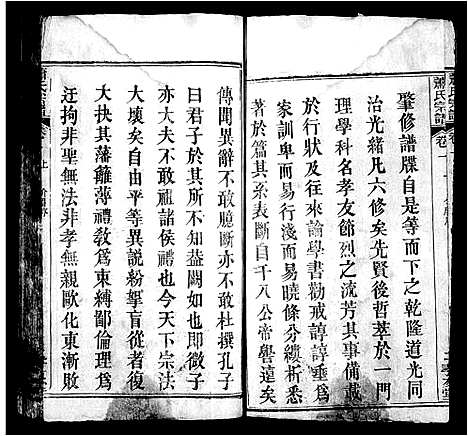 蕭氏宗譜
卷一
肇修譜牒自是等而下之乾隆道光同
治光緒凡六修矣先賢後哲萃於一門
理學科名孝友節烈之流芳其事備載
家訓卑而易行淺而易曉條分縷析悉
著於篇其系表斷自千八公帝嚳遠矣
傳聞異辭不敢臆斷亦不敢杜撰孔子
曰君子於其所不知益闕如也即微子
亦大夫不敢祖諸侯禮也今天下宗法
大壞矣自由平等異說紛拏盲從者復
大抉其藩籬薄禮教為束縛鄙倫理為
迂拘非聖無法非孝無親歐化東漸敗